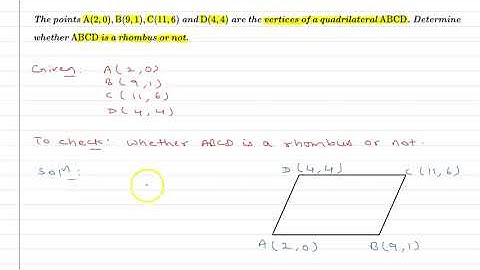 The points A(2, 0), B(9, 1), C(11, 6) and D(4, 4) are the vertices of a quadrilateral ABCD. Determine
whether ABCD is a rhombus or not.
Given: A(2,0)
B(9,1)
C(11,6)
D(4,4)
To check: Whether ABCD is a rhombus or not.
Soln:
D(4,4) C(11,6)
A(2,0) B(9,1)